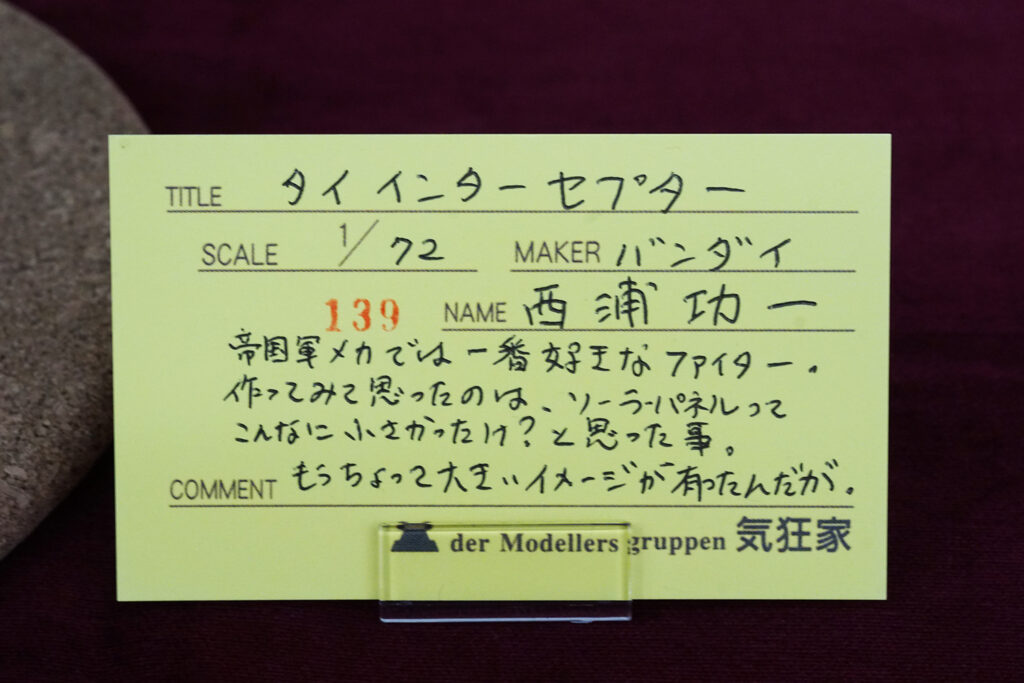 TITLE タイ インターセプター
SCALE 1/72 MAKER バンダイ
139 NAME 西浦功一
帝国軍メカでは一番好きなファイター。
作ってみて思ったのは、ソーラーパネルって
こんなに小さかったけ?と思った事。
COMMENT もうちょって大きいイメージが有ったんだが。
der Modellers gruppen 気狂家